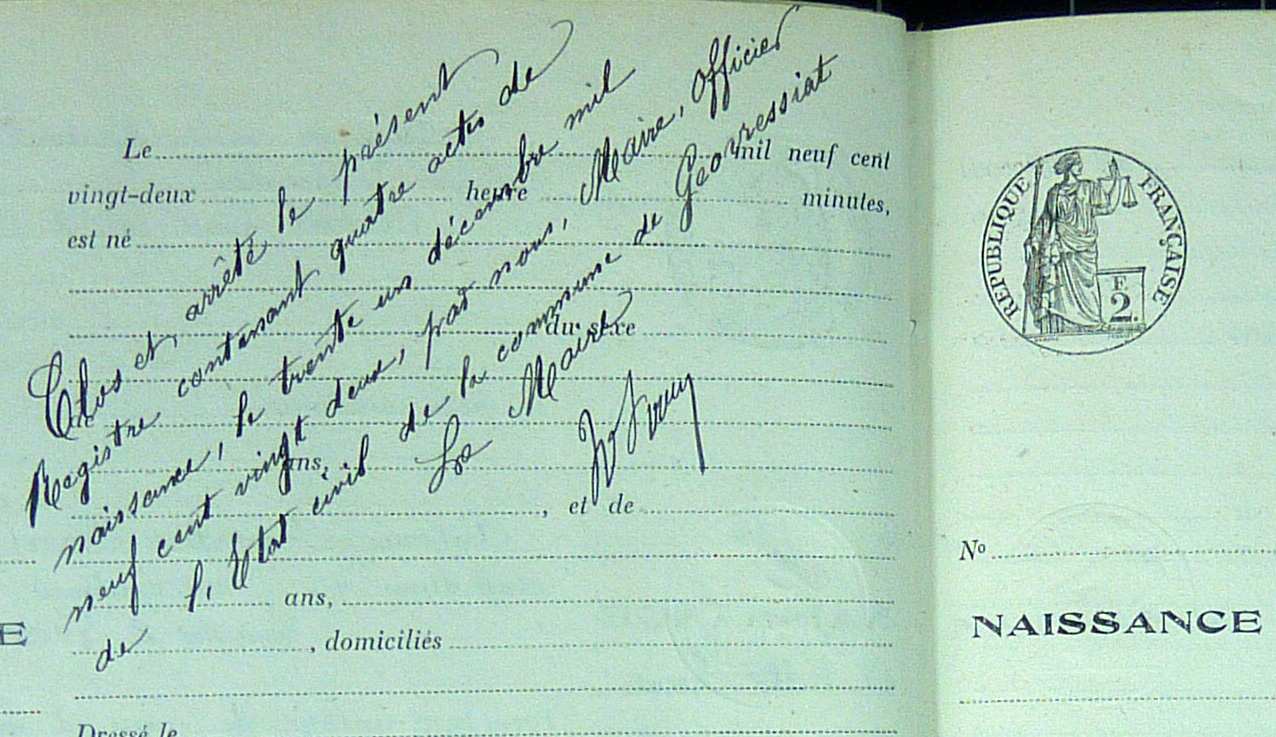 Le mil neuf cent
vingt-deux heure minutes,
est né
du sexe
ans,
, et de
ans,
, domiciliés
Dressé le
Clos et, arrêté le présent
Registre contenant quatre actes de
naissance, le trente un décembre mil
neuf cent vingt deux, par nous, Maire, Officier
de l'Etat civil de la commune de Geovressiat
Le Maire
RÉPUBLIQUE FRANÇAISE
F
2.
No
NAISSANCE
E